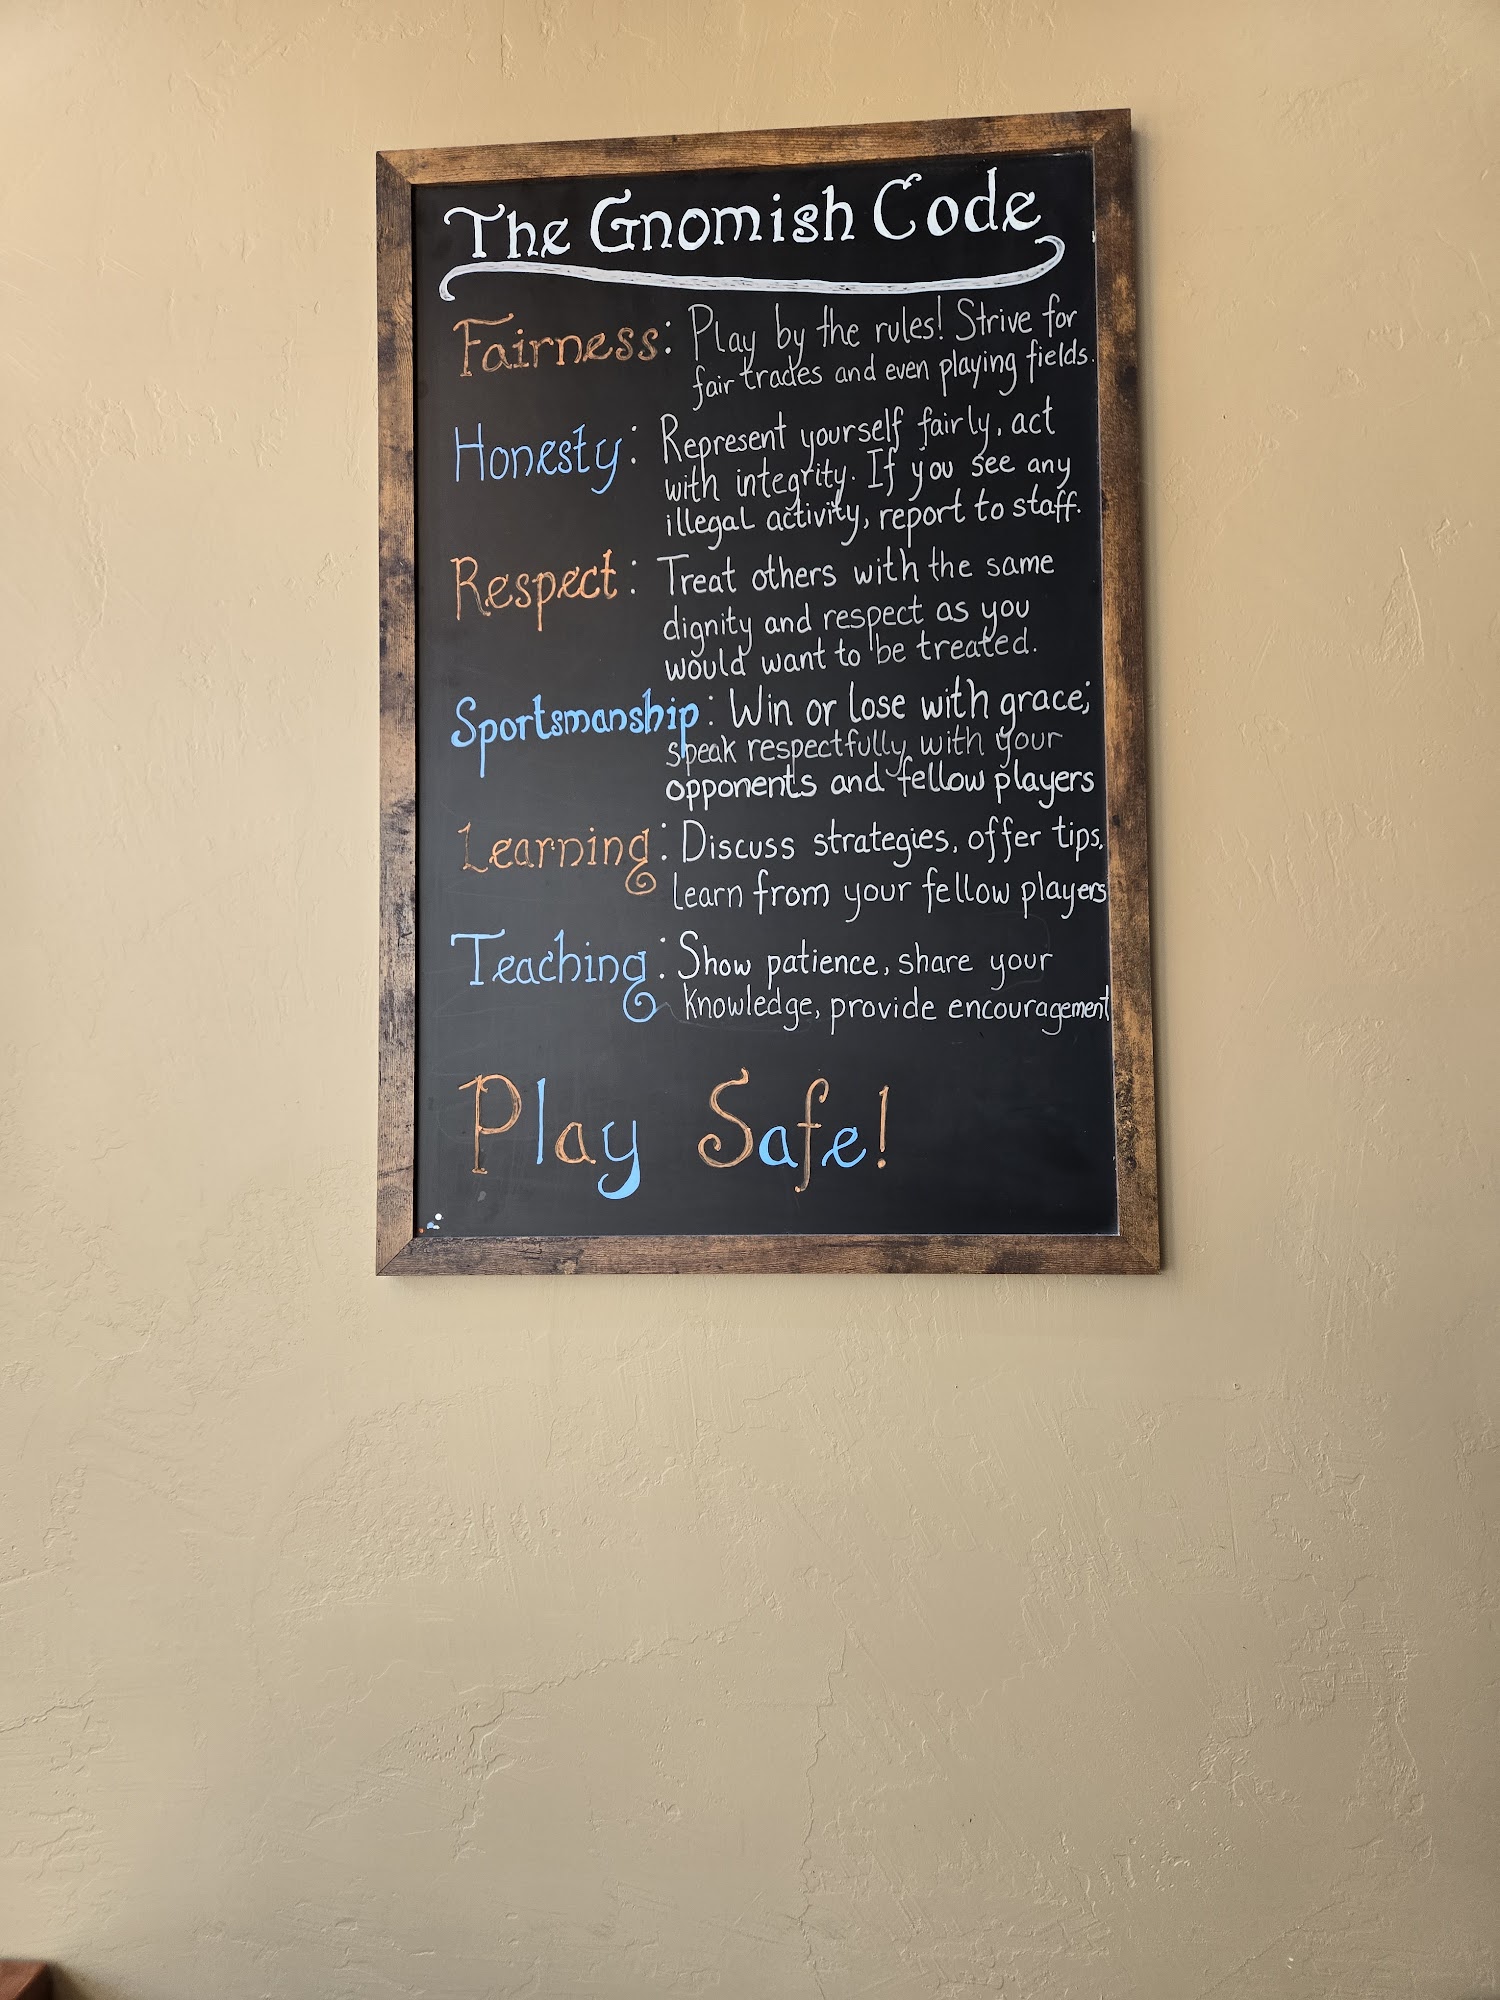 The Gnomish Code
Fairness: Play by the rules! Strive for
fair trades and even playing fields.
Honesty: Represent yourself fairly, act
with integrity. If you see any
illegal activity, report to staff.
Respect: Treat others with the same
dignity and respect as you
would want to be treated.
Sportsmanship: Win or lose with grace;
speak respectfully with your
opponents and fellow players
Learning: Discuss strategies, offer tips,
learn from your fellow players
Teaching: Show patience, share your
knowledge, provide encouragement
Play Safe!